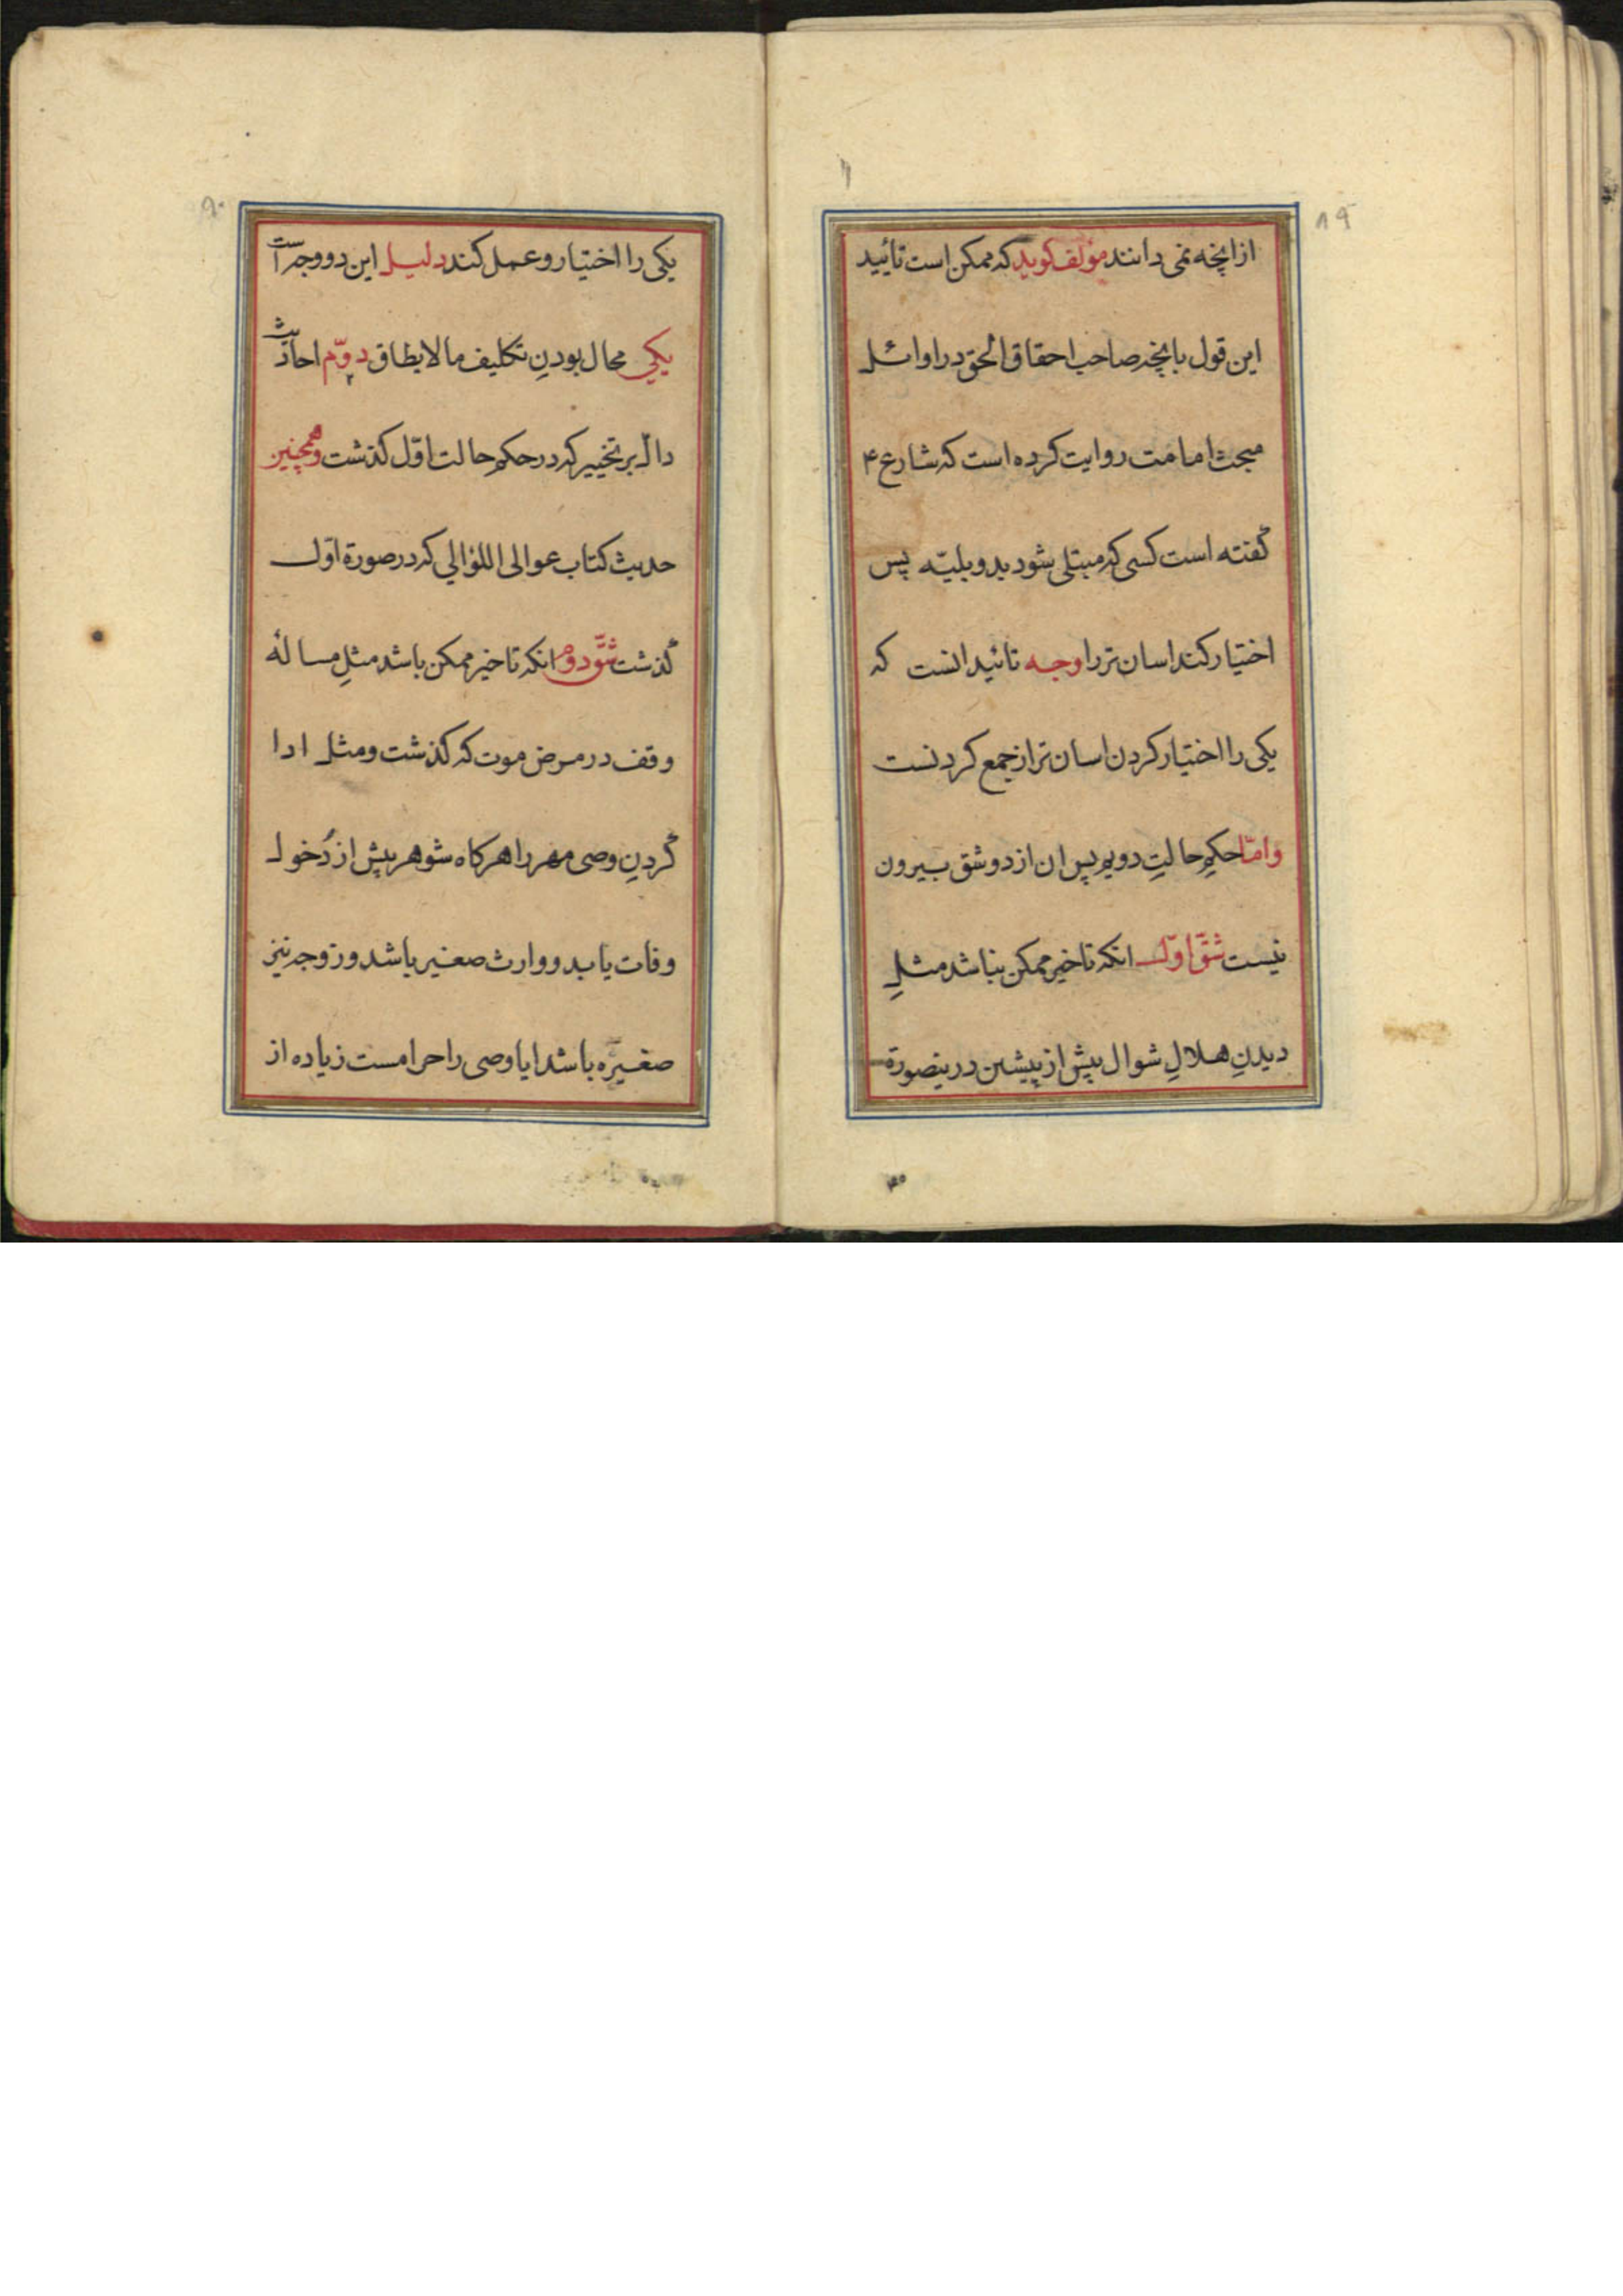 ۸۹
از انچه نمی دانند مؤلف کوید که ممکن است تائید
این قول بانچه صاحب احقاق الحق در اوائل
مبحث امامت روایت کرده است که شارع ۴
گفته است کسی که مبتلی شود بدو بلیّه پس
اختیار کند اسان تر را وجه تائید انست که
یکی را اختیار کردن اسان تر از جمع کردنست
وامّا حکمِ حالتِ دویم پس ان از دو شق بیرون
نیست شقّ اوّل انکه تاخیر ممکن نباشد مثلِ
دیدنِ هلالِ شوال پیش از پیشین درینصورة
۹۰
یکی را اختیار و عمل کند دلیل این دو وجه است
یکی محال بودنِ تکلیف ما لا یطاق دوّم احادیث
دال بر تخییر که در حکمِ حالت اوّل کذشت وهمچنین
حدیث کتاب عوالی اللؤالی که در صورة اوّل
گذشت شقّ دوم انکه تاخیر ممکن باشد مثلِ مسالهٔ
وقف در مرض موت که کذشت ومثل ادا
گردنِ وصی مهر را هرکاه شوهر پیش از دُخول
وفات یابد ووارث صغیر باشد وزوجه نیز
صغیرّه باشد ایا وصی را حرامست زیاده از